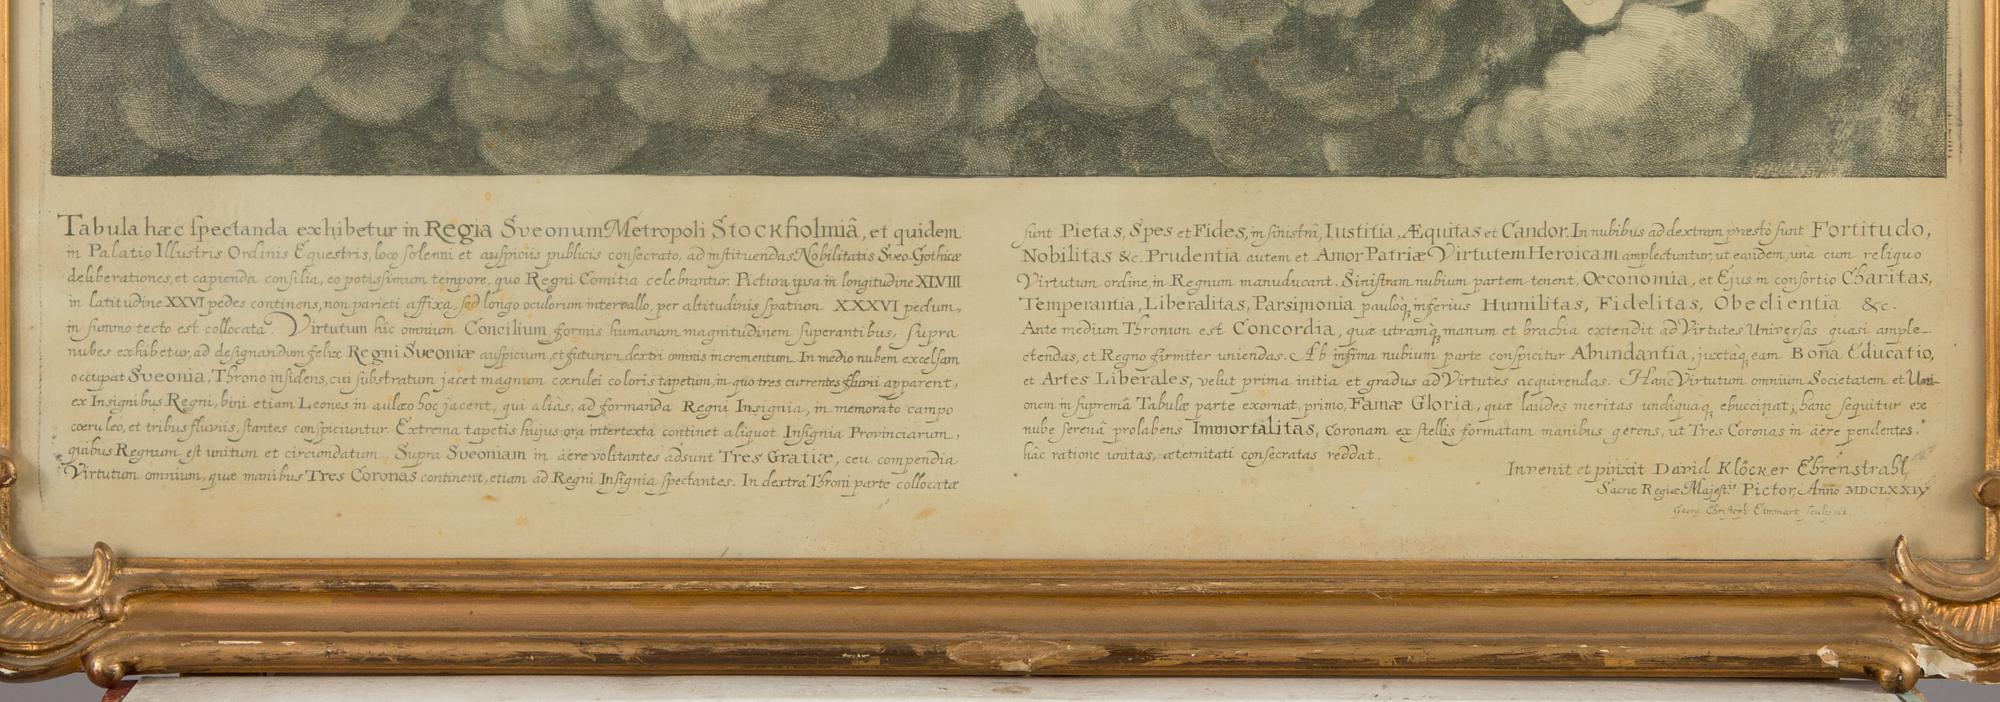 Tabula hæc spectanda exhibetur in Regia Sveonum Metropoli Stockholmiâ, et quidem
in Palatio Illustris Ordinis Equestris, loco solenni et auspiciis publicis consecrato, ad instituendas Nobilitatis Sveo-Gothicæ
deliberationes, et capienda consilia, eo potissimum tempore, quo Regni Comitia celebrantur. Pictura ipsa in longitudine XLVIII
in latitudine XXVI pedes continens, non parieti affixa, sed longo oculorum intervallo, per altitudinis spatium XXXVI pedum,
in summo tecto est collocata. Virtutum hîc omnium Concilium formis humanam magnitudinem superantibus, supra
nubes exhibetur, ad designandum felix Regni Sveoniæ auspicium, et futurum dextri ominis incrementum. In medio nubem excelsam
occupat Sveonia, Throno insidens, cui substratum jacet magnum cœrulei coloris tapetum, in quo tres currentes fluvii apparent,
ex Insignibus Regni, bini etiam Leones in aulæo hoc jacent, qui aliàs, ad formanda Regni Insignia, in memorato campo
cœruleo, et tribus fluviis, stantes conspiciuntur. Extrema tapetis hujus ora intertexta continet aliquot Insignia Provinciarum,
quibus Regnum est unitum et circumdatum. Supra Sveoniam in aëre volitantes adsunt Tres Gratiæ, ceu compendia
Virtutum omnium, quæ manibus Tres Coronas continent, etiam ad Regni Insignia spectantes. In dextra Throni parte collocatæ
sunt Pietas, Spes et Fides, in sinistrâ, Iustitia, Æquitas et Candor. In nubibus ad dextram præstò sunt Fortitudo,
Nobilitas &c. Prudentia autem et Amor Patriæ Virtutem Heroicam amplectuntur, ut eandem, unà cum reliquo
Virtutum ordine, in Regnum manuducant. Sinistram nubium partem tenent, Oeconomia, et Ejus in consortio Charitas,
Temperantia, Liberalitas, Parsimonia pauloq; inferius Humilitas, Fidelitas, Obedientia &c.
Ante medium Thronum est Concordia, quæ utramq; manum et brachia extendit ad Virtutes Universas quasi ample-
ctendas, et Regno firmiter uniendas. Ab infima nubium parte conspicitur Abundantia, juxtaq; eam Bona Educatio,
et Artes Liberales, velut prima initia et gradus ad Virtutes acquirendas. Hanc Virtutum omnium Societatem et Uni-
onem in supremâ Tabulæ parte exornat, primo, Famæ Gloria, quæ laudes meritas undiquaq; ebuccinat; hanc sequitur ex
nube serenâ prolabens Immortalitas, Coronam ex stellis formatam manibus gerens, ut Tres Coronas in aëre pendentes.
hâc ratione unitas, æternitati consecratas reddat.
Invenit et pinxit David Klöcker Ehrenstrahl
Sacræ Regiæ Majest:is Pictor, Anno MDCLXXIV
Georg Christoph Eimmart sculpsit.